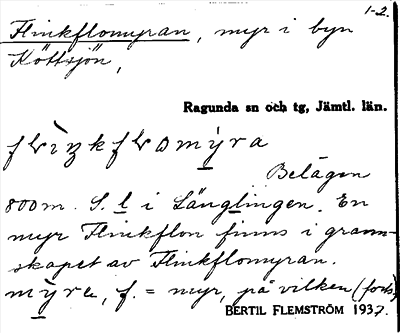 1-2.
Flinkflomyran, myr i byn
Köttsjön,
Ragunda sn och tg, Jämtl. län.
Belägen
800 m. S. l i Länglingen. En
myr Flinkflon finns i grann-
skapet av Flinkflomyran.
myra, f. = myr, på vilken (forts)
BERTIL FLEMSTRÖM 1937.